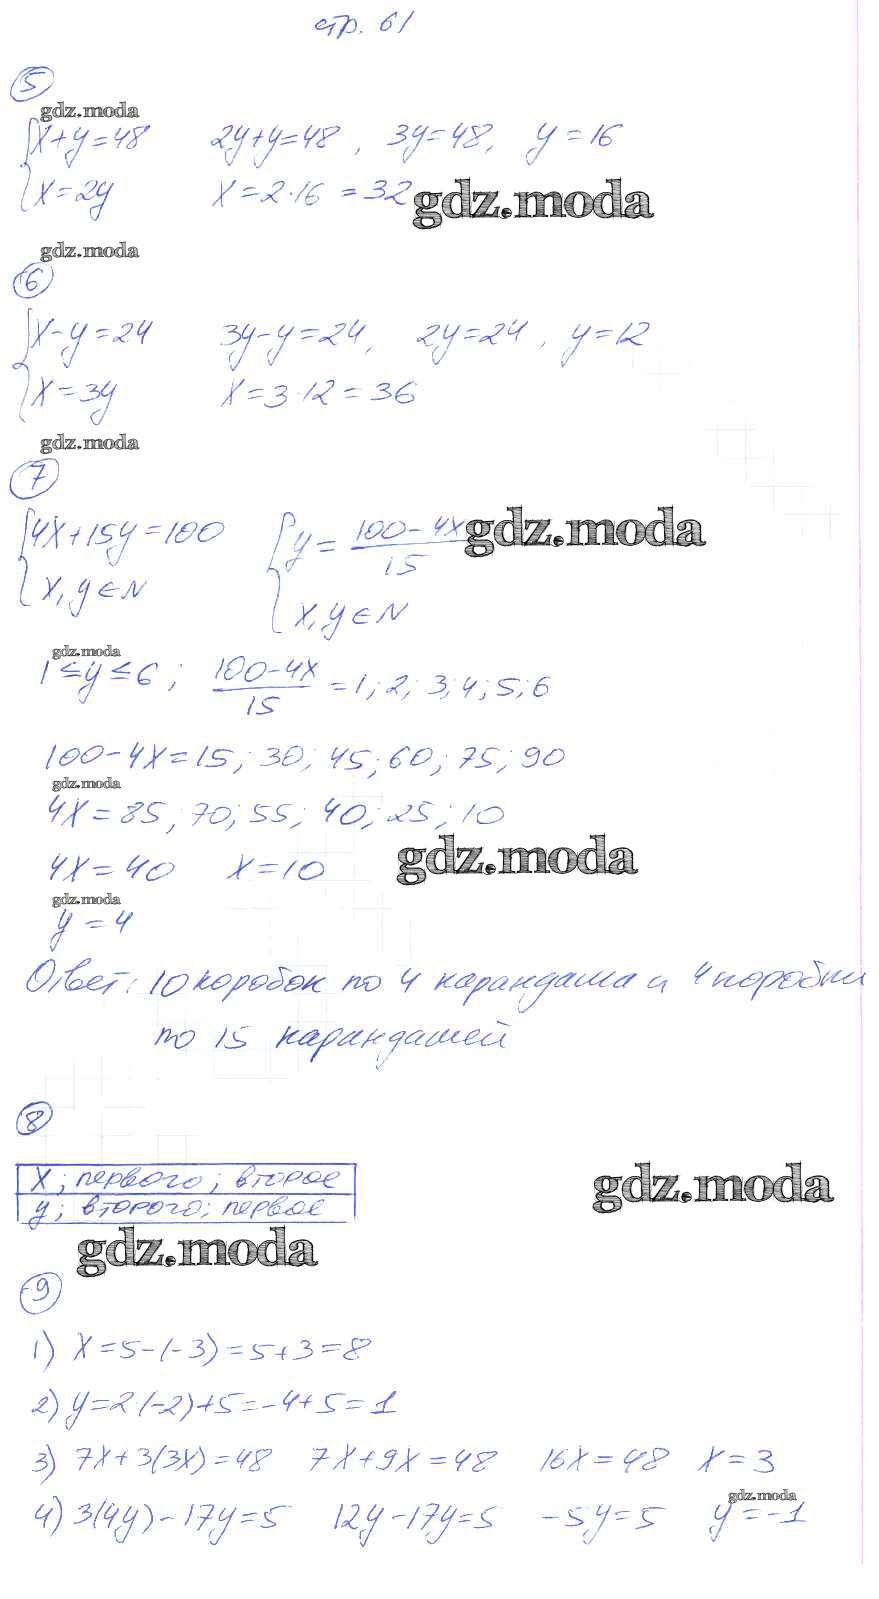 стр. 61
5
gdz.moda
{x+y=48 2y+y=48, 3y=48, y=16
x=2y x=2·16=32
gdz.moda
gdz.moda
6
{x-y=24 3y-y=24, 2y=24, y=12
x=3y x=3·12=36
gdz.moda
7
{4x+15y=100 {y=(100-4x)/15
gdz.moda
x, y∈N x, y∈N
gdz.moda
1≤y≤6; (100-4x)/15=1; 2; 3; 4; 5; 6
100-4x=15; 30; 45; 60; 75; 90
gdz.moda
4x=85; 70; 55; 40; 25; 10
4x=40 x=10
gdz.moda
gdz.moda
y=4
Ответ: 10 коробок по 4 карандаша и 4 коробки
по 15 карандашей
8
x; первого; второе
y; второго; первое
gdz.moda
gdz.moda
9
1) x=5-(-3)=5+3=8
2) y=2·(-2)+5=-4+5=1
3) 7x+3(3x)=48 7x+9x=48 16x=48 x=3
gdz.moda
4) 3(4y)-17y=5 12y-17y=5 -5y=5 y=-1